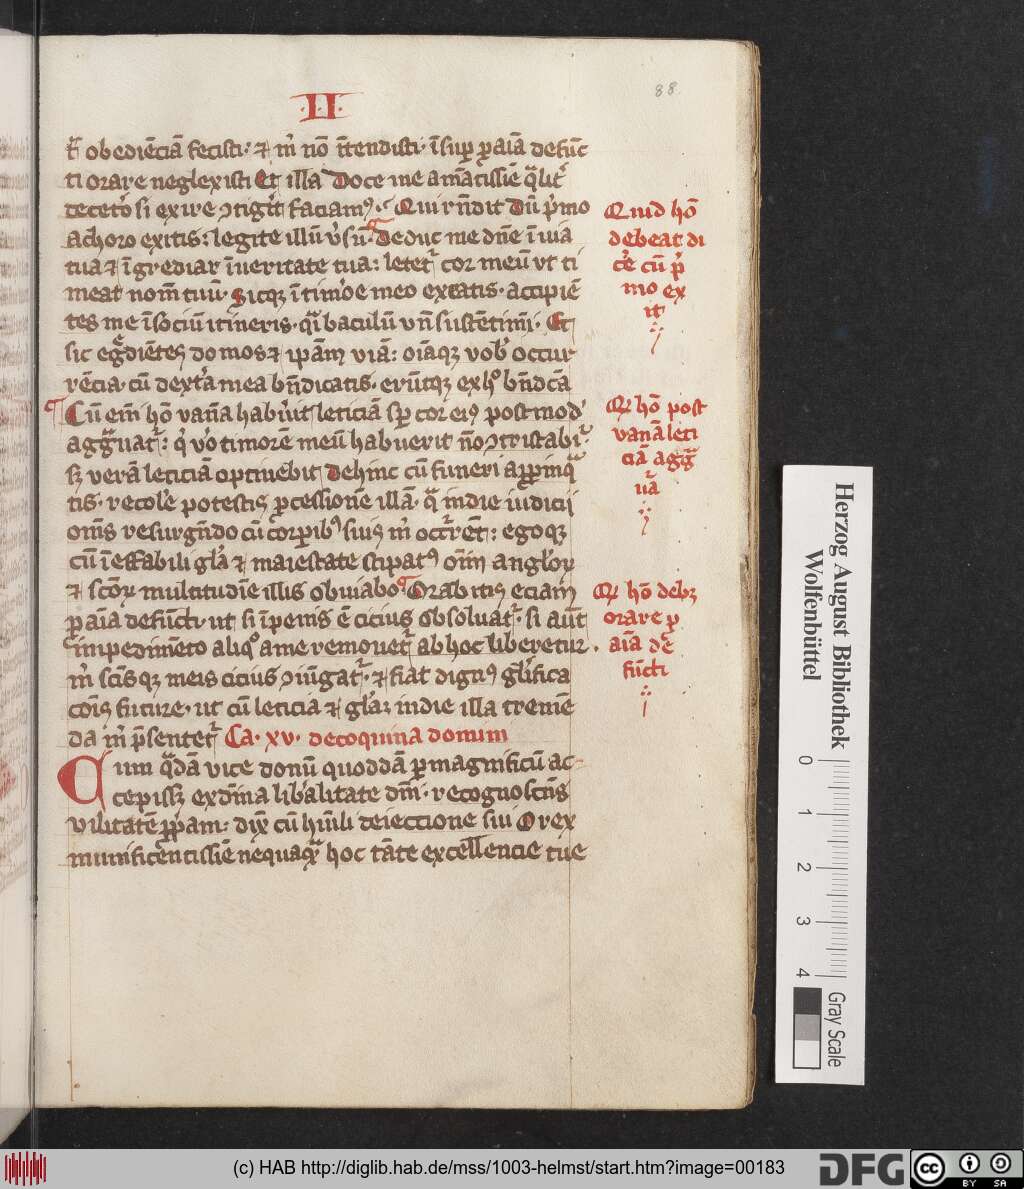 ·II·
88
obediēciā fecisti· ⁊ m̄ nō ītendisti· īsup̄ p̄ aīā defūc
ti orare neglexisti Et illa Doce me amātissīe qͣlit᷑
si exire ꝯtigit faciamꝰ· Qui rn̄dit Dū p̄mo
ac horo exitis: legite illū v̓sū· Deduc me dn̄e ī uia
tua ⁊ īgrediar ī ueritate tua: letet᷑ cor meū vt ti
meat nom̄ tuū· Sicqꝫ ī timōe meo extatis· accipiē
tes me ī sociū itineris· qͣi baculū vn̄ sustētimī· Et
sic egͣdiētes domos ⁊ ip̄am viā: oīaqꝫ vob̓ occur
rēcia· cū dextͣa mea bn̄dicatis· erūtqꝫ ex hͦ bn̄dcā
Cū em̄ hō vana habūit leticiā sp̄ cor eiꝰ post mod̓
aggͣuat᷑: qͥ vͦo timorē meū habuerit nō ꝯtristabit᷑
sꝫ verā leticiā optinebit Dehinc cū funeri app̄inqͣ
tis· recole potestis p̄cessionē illā· qͣ in die iudicij
om̄s resurgn̄do cū corpib᷒ suis m̄ occr̄rēt: egoqꝫ
cū īeffabili glͣa ⁊ maiestate stipatꝰ om̄ anglōꝝ
⁊ scōꝝ multitudīe illis obuiabo Orabitis eciam
p̄ aīa defūcti· ut si ī penis ē cicius absoluat᷑· si aūt
īmpedimēto aliqͦ a me remouet᷑ ab hoc liberetur
m̄ scīsqꝫ meis cicius ꝯiūgat᷑· ⁊ fiat dignꝰ glͥfica
cōis future· ut cū leticia ⁊ glͣa in die illa tremē
da m̄ p̄sentet᷑ Ca· xv· de coquina domini
Cum qͣdā vice donū quoddā p̄magnificū ac
cepissꝫ ex dīna libālitate dn̄i· recognoscn̄s
vilitatē pp̄am· dix̄ cū hūili deiectione sui O rex
munificentissīe nequaqͣ hoc tāte excellencie tue
Quid hō
debeat di
cē cū p̄
mo ex
it
Qͩ hō post
vanā leti
ciā aggͣ
uāt
Qͩ hō debꝫ
orare p̄
aīa de
fūcti
Herzog August Bibliothek
Wolfenbüttel
0 1 2 3 4
Gray Scale
(c) HAB http://diglib.hab.de/mss/1003-helmst/start.htm?image=00183
DFG
cc BY SA